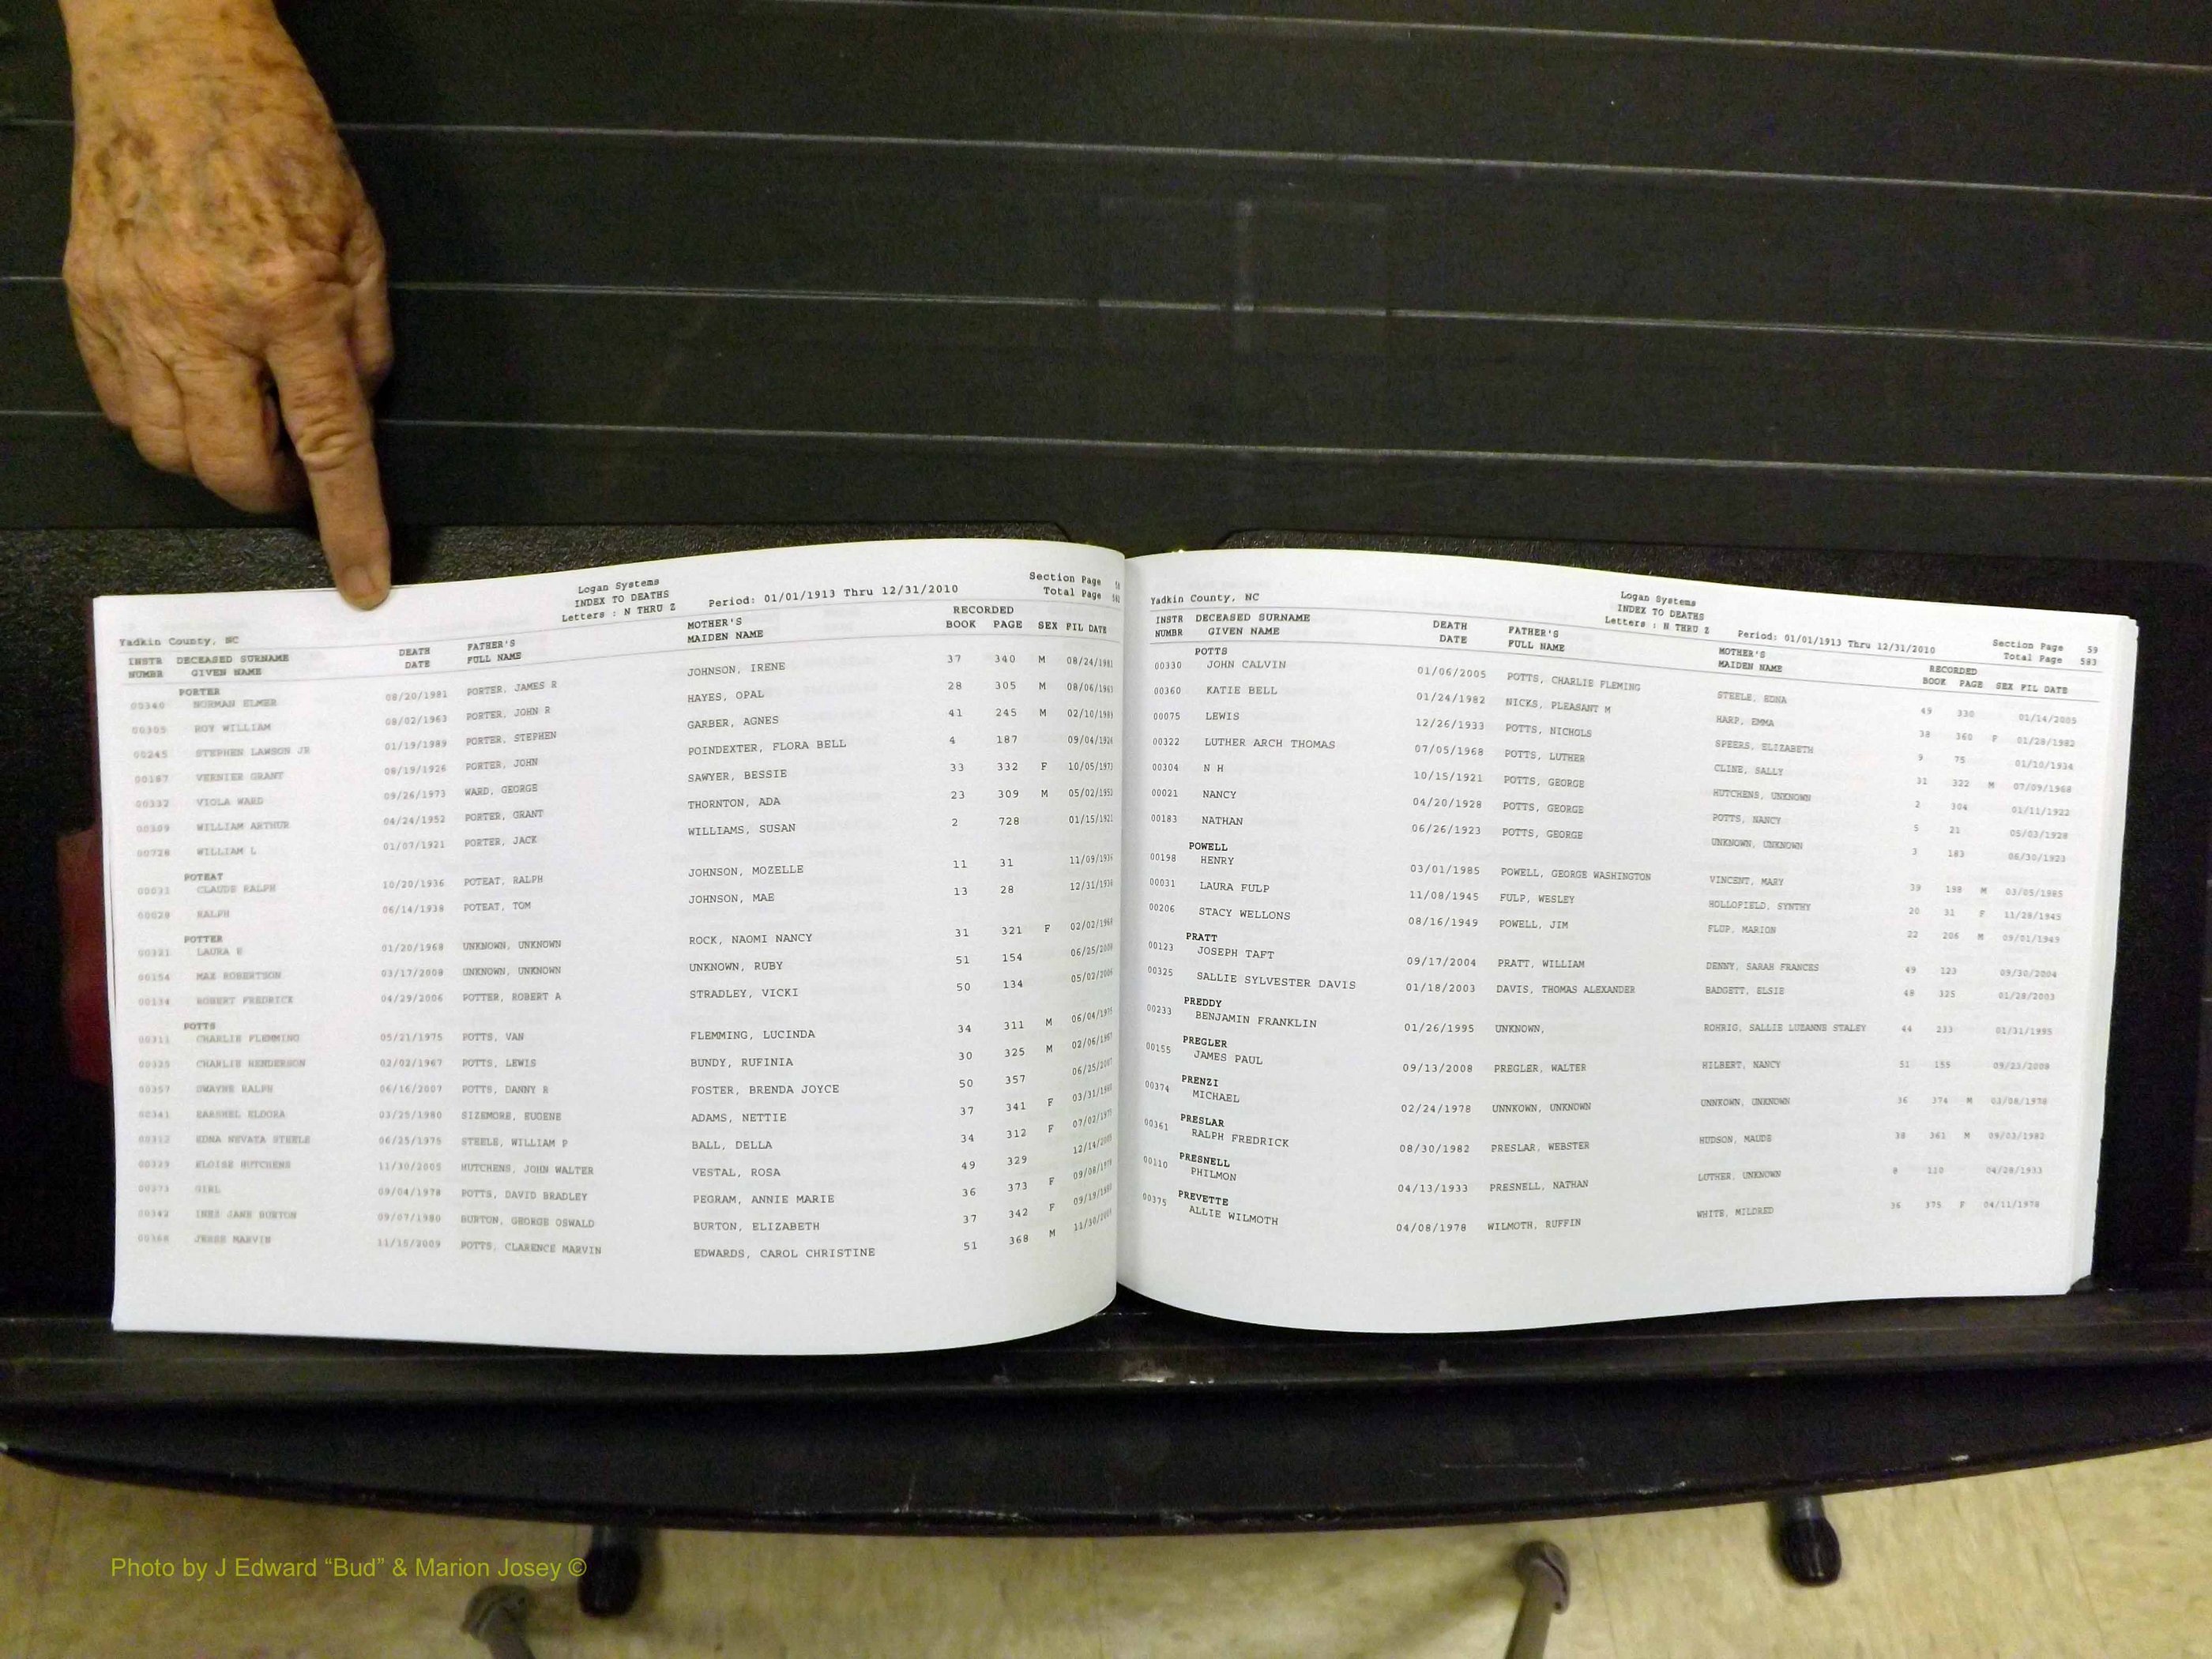 Logan Systems
INDEX TO DEATHS
Letters : N THRU Z Period: 01/01/1913 Thru 12/31/2010
Section Page
Total Page
Yadkin County, NC
INSTR NUMBR DECEASED SURNAME GIVEN NAME DEATH DATE FATHER'S FULL NAME MOTHER'S MAIDEN NAME RECORDED BOOK PAGE SEX FIL DATE
PORTER
00340 NORMAN ELMER 08/20/1981 PORTER, JAMES R JOHNSON, IRENE 37 340 M 08/24/1981
00305 ROY WILLIAM 08/02/1963 PORTER, JOHN R HAYES, OPAL 28 305 M 08/06/1963
00245 STEPHEN LAWSON JR 01/19/1989 PORTER, STEPHEN GARBER, AGNES 41 245 M 02/10/1989
00187 VERNIER GRANT 08/19/1926 PORTER, JOHN POINDEXTER, FLORA BELL 4 187 09/04/1926
00332 VIOLA WARD 09/26/1973 WARD, GEORGE SAWYER, BESSIE 33 332 F 10/05/1973
00309 WILLIAM ARTHUR 04/24/1952 PORTER, GRANT THORNTON, ADA 23 309 M 05/02/1952
00728 WILLIAM L 01/07/1921 PORTER, JACK WILLIAMS, SUSAN 2 728 01/15/1921
POTEAT
00031 CLAUDE RALPH 10/20/1936 POTEAT, RALPH JOHNSON, MOZELLE 11 31 11/09/1936
00028 RALPH 06/14/1938 POTEAT, TOM JOHNSON, MAE 13 28 12/31/1938
POTTER
00321 LAURA E 01/20/1968 UNKNOWN, UNKNOWN ROCK, NAOMI NANCY 31 321 F 02/02/1968
00154 MAE ROBERTSON 03/17/2008 UNKNOWN, UNKNOWN UNKNOWN, RUBY 51 154 06/25/2008
00134 ROBERT FREDRICK 04/29/2006 POTTER, ROBERT A STRADLEY, VICKI 50 134 05/02/2006
POTTS
00311 CHARLIE FLEMMING 05/21/1975 POTTS, VAN FLEMMING, LUCINDA 34 311 M 06/04/1975
00325 CHARLIE HENDERSON 02/02/1967 POTTS, LEWIS BUNDY, RUFINIA 30 325 M 02/06/1967
00357 DWAYNE RALPH 06/16/2007 POTTS, DANNY R FOSTER, BRENDA JOYCE 50 357 06/25/2007
00341 EARSHEL ELDORA 03/25/1980 SIZEMORE, EUGENE ADAMS, NETTIE 37 341 F 03/31/1980
00312 EDNA NEVATA STEELE 06/25/1975 STEELE, WILLIAM P BALL, DELLA 34 312 F 07/02/1975
00329 ELOISE HUTCHENS 11/30/2005 HUTCHENS, JOHN WALTER VESTAL, ROSA 49 329 12/14/2005
00373 GIRL 09/04/1978 POTTS, DAVID BRADLEY PEGRAM, ANNIE MARIE 36 373 F 09/08/1978
00342 INEZ JANE BURTON 09/07/1980 BURTON, GEORGE OSWALD BURTON, ELIZABETH 37 342 F 09/19/1980
00368 JESSE MARVIN 11/18/2009 POTTS, CLARENCE MARVIN EDWARDS, CAROL CHRISTINE 51 368 M 11/30/2009
Logan Systems
INDEX TO DEATHS
Letters : N THRU Z Period: 01/01/1913 Thru 12/31/2010
Section Page 59
Total Page 583
Yadkin County, NC
INSTR NUMBR DECEASED SURNAME GIVEN NAME DEATH DATE FATHER'S FULL NAME MOTHER'S MAIDEN NAME RECORDED BOOK PAGE SEX FIL DATE
POTTS
00330 JOHN CALVIN 01/06/2005 POTTS, CHARLIE FLEMING STEELE, EDNA 49 330 01/14/2005
00360 KATIE BELL 01/24/1982 NICKS, PLEASANT M HARP, EMMA 38 360 F 01/28/1982
00075 LEWIS 12/26/1933 POTTS, NICHOLS SPEERS, ELIZABETH 9 75 01/10/1934
00322 LUTHER ARCH THOMAS 07/05/1968 POTTS, LUTHER CLINE, SALLY 31 322 M 07/09/1968
00304 N H 10/15/1921 POTTS, GEORGE HUTCHENS, UNKNOWN 2 304 01/11/1922
00021 NANCY 04/20/1928 POTTS, GEORGE POTTS, NANCY 5 21 05/03/1928
00183 NATHAN 06/26/1923 POTTS, GEORGE UNKNOWN, UNKNOWN 3 183 06/30/1923
POWELL
00198 HENRY 03/01/1985 POWELL, GEORGE WASHINGTON VINCENT, MARY 39 198 M 03/05/1985
00031 LAURA FULP 11/08/1945 FULP, WESLEY HOLLOFIELD, SYNTHY 20 31 F 11/28/1945
00206 STACY WELLONS 08/16/1949 POWELL, JIM FLUP, MARION 22 206 M 09/01/1949
PRATT
00123 JOSEPH TAFT 09/17/2004 PRATT, WILLIAM DENNY, SARAH FRANCES 49 123 09/30/2004
00325 SALLIE SYLVESTER DAVIS 01/18/2003 DAVIS, THOMAS ALEXANDER BADGETT, ELSIE 48 325 01/28/2003
PREDDY
00233 BENJAMIN FRANKLIN 01/26/1995 UNKNOWN, ROHRIG, SALLIE LUZANNE STALEY 44 233 01/31/1995
PREGLER
00155 JAMES PAUL 09/13/2008 PREGLER, WALTER HILBERT, NANCY 51 155 09/23/2008
PRENZI
00374 MICHAEL 02/24/1978 UNNKOWN, UNKNOWN UNNKOWN, UNKNOWN 36 374 M 03/08/1978
PRESLAR
00361 RALPH FREDRICK 08/30/1982 PRESLAR, WEBSTER HUDSON, MAUDE 38 361 M 09/03/1982
PRESNELL
00110 PHILMON 04/13/1933 PRESNELL, NATHAN LUTHER, UNKNOWN 8 110 04/28/1933
PREVETTE
00375 ALLIE WILMOTH 04/08/1978 WILMOTH, RUFFIN WHITE, MILDRED 36 375 F 04/11/1978
Photo by J Edward “Bud” & Marion Josey ©